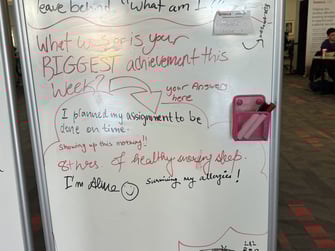 leave behind "What am I
What was or is your
BIGGEST achievement this
week?
your Answer
here
I planned my assignment to be
done on time.
Showing up this morning!!
8+ hrs of healthy evening sleep.
I'm Alive
surviving my allergies!